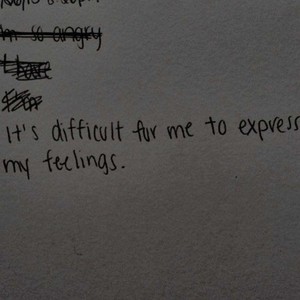 I'm so angry
I have
It's difficult for me to express
my feelings.